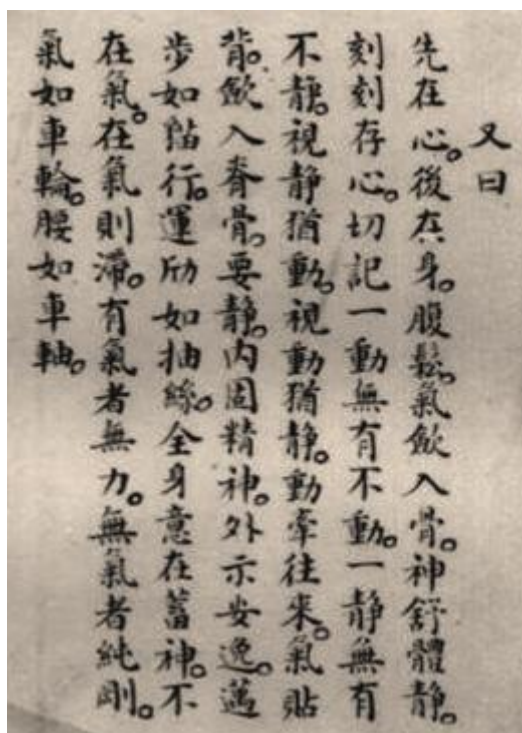 又曰
先在心。後在身。腹鬆。氣歛入骨。神舒體静。
刻刻存心。切記一動無有不動。一静無有
不静。視静猶動。視動猶静。動牽往来。氣貼
背。歛入脊骨。要静。内固精神。外示安逸。邁
步如貓行。運劤如抽絲。全身意在蓄神。不
在氣。在氣則滯。有氣者無力。無氣者純剛。
氣如車輪。腰如車軸。